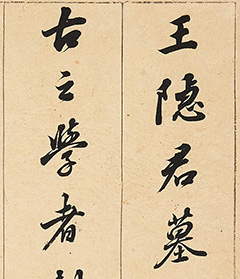 王隐君墓
古之學者